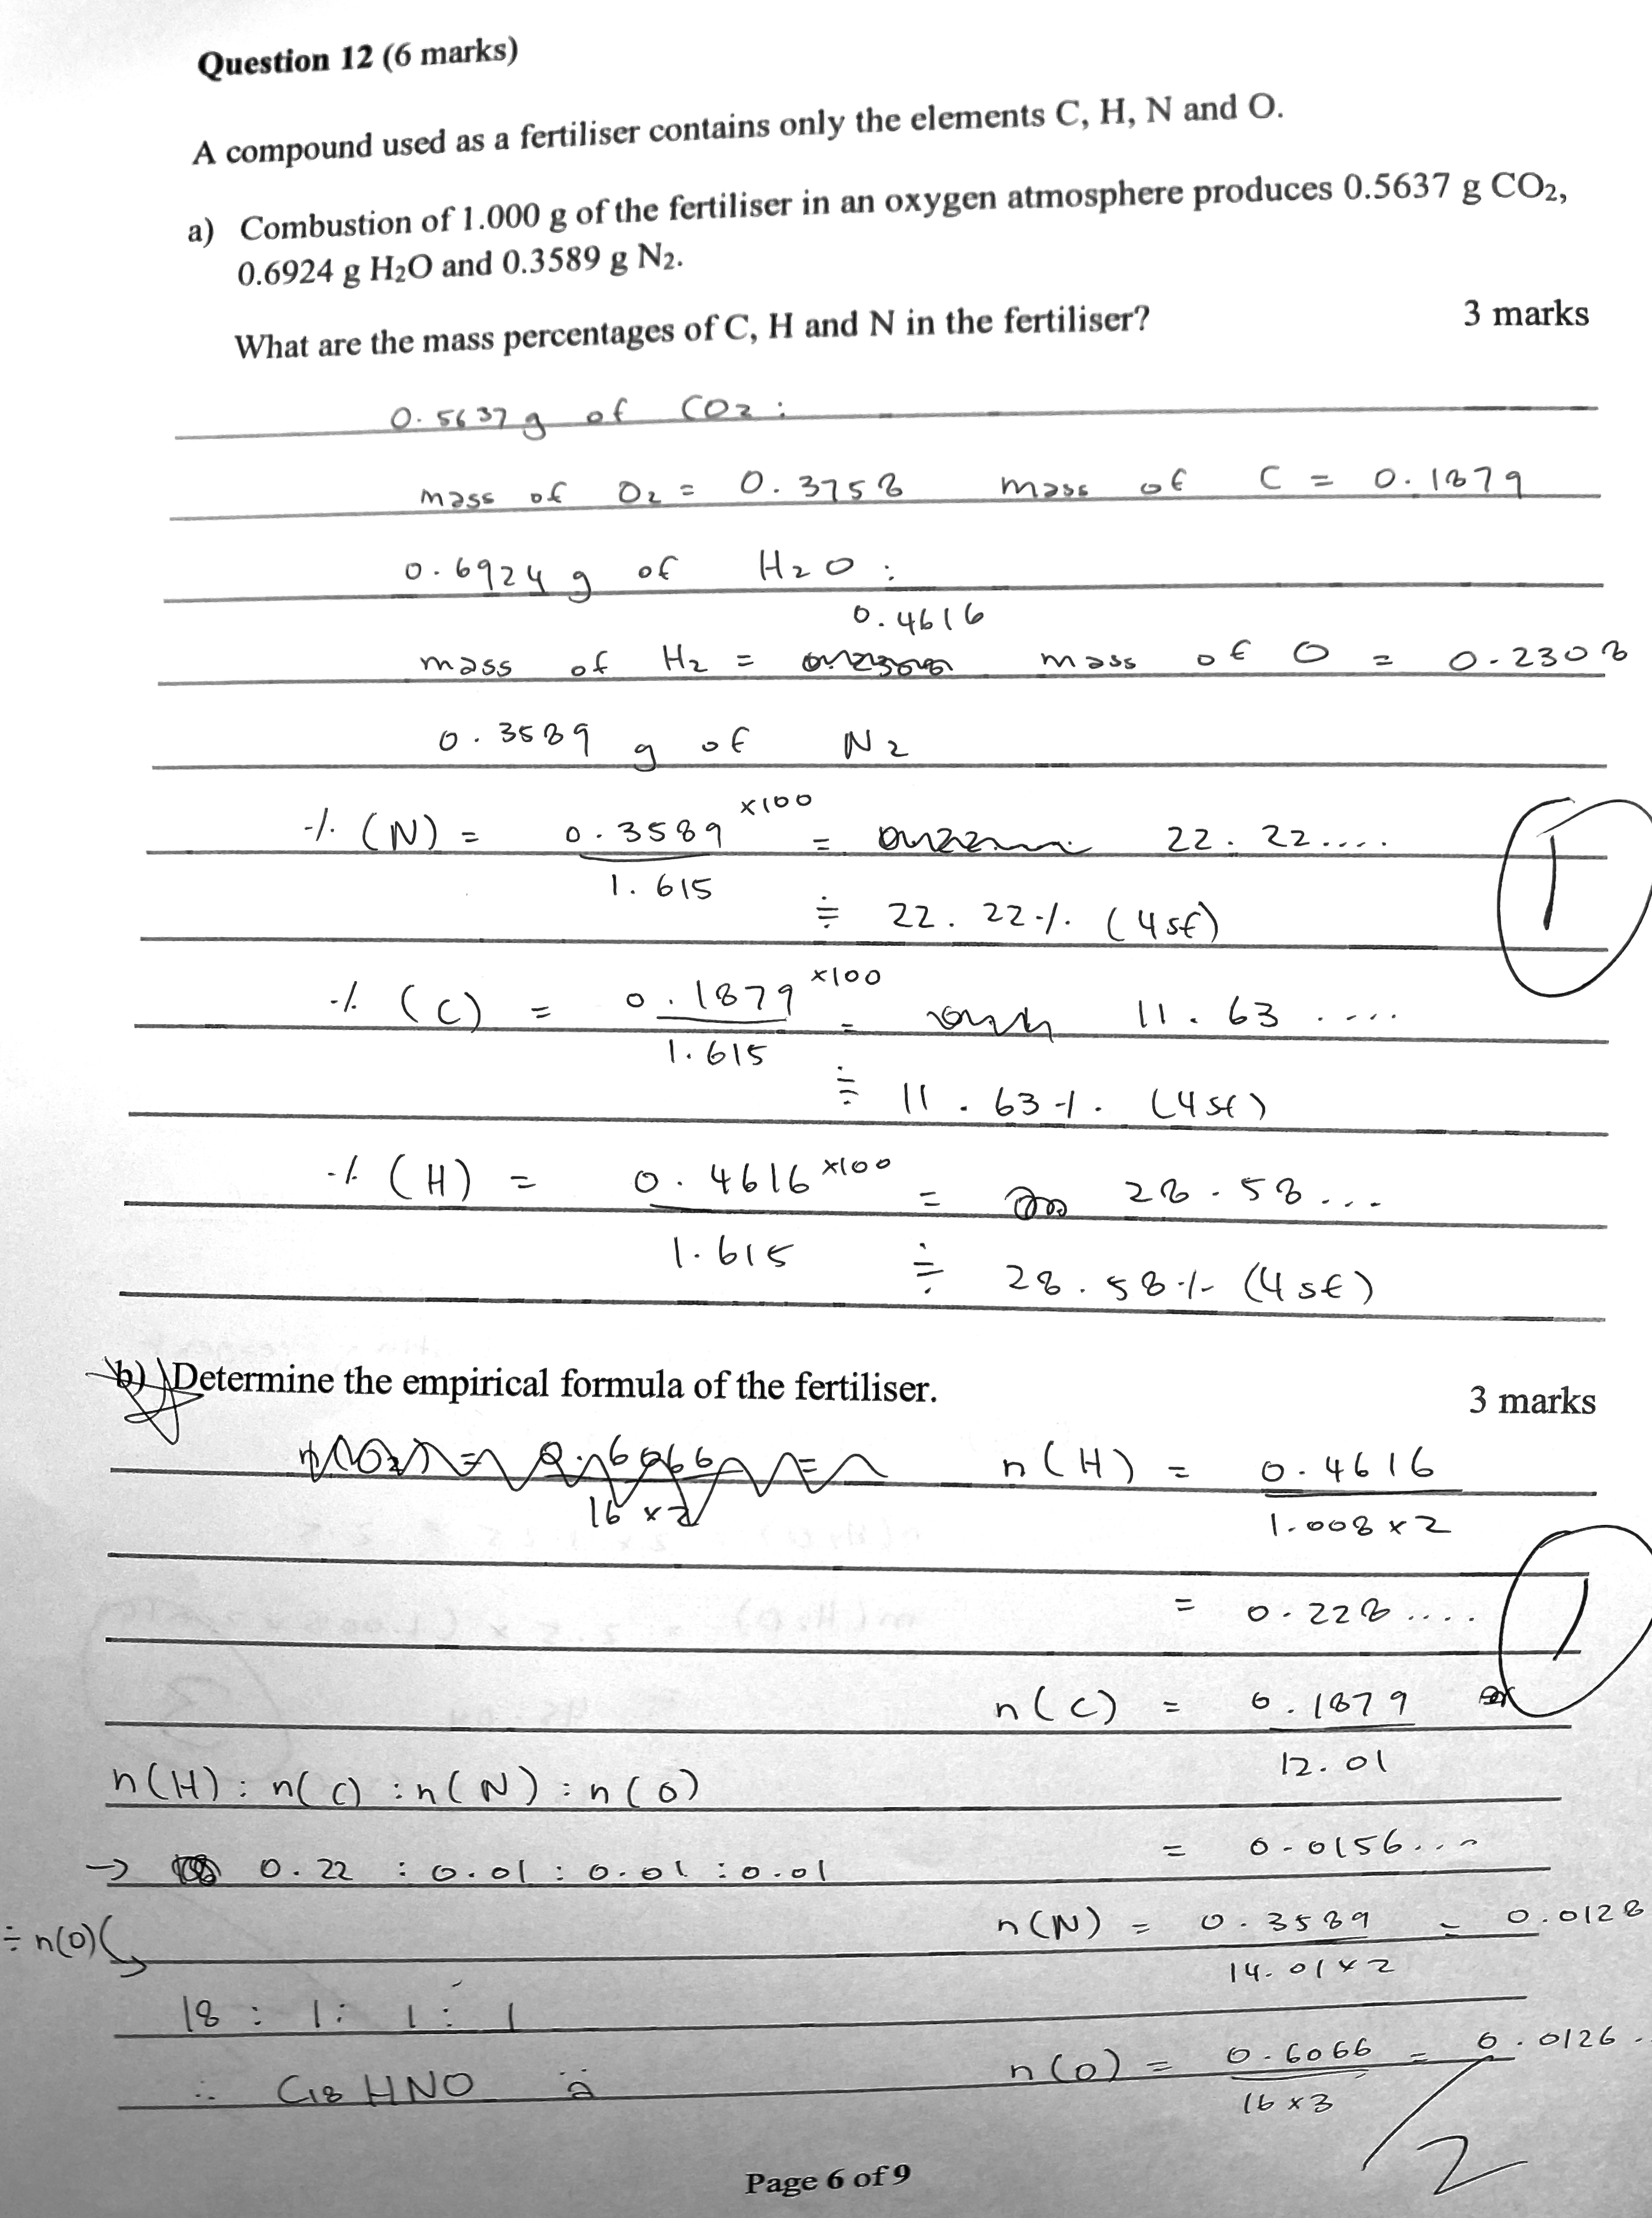 Question 12 (6 marks)
A compound used as a fertiliser contains only the elements C, H, N and O.
a) Combustion of 1.000 g of the fertiliser in an oxygen atmosphere produces 0.5637 g CO₂,
0.6924 g H₂O and 0.3589 g N₂.
What are the mass percentages of C, H and N in the fertiliser? 3 marks
0.5637 g of CO2 :
mass of O2 = 0.3758 mass of C = 0.1879
0.6924 g of H2O :
0.4616
mass of H2 = mass of O = 0.2308
0.3589 g of N2
% (N) = 0.3589 ×100 = 22.22....
1.615
≑ 22.22% (4sf)
% (C) = 0.1879 ×100 = 11.63 ....
1.615
≑ 11.63%. (4sf)
% (H) = 0.4616 ×100 = 28.58...
1.615
≑ 28.58% (4sf)
1
b) Determine the empirical formula of the fertiliser. 3 marks
n(O2) = 0.6066 =
16 × 2
n(H) = 0.4616
1.008 × 2
= 0.228....
1
n(C) = 0.1879
12.01
= 0.0156...
n(N) = 0.3589 = 0.0128
14.01 × 2
n(O) = 0.6066 = 0.0126..
16 × 3
n(H) : n(C) : n(N) : n(O)
→ 0.22 : 0.01 : 0.01 : 0.01
÷ n(O)
18 : 1 : 1 : 1
∴ C18HNO
2
Page 6 of 9